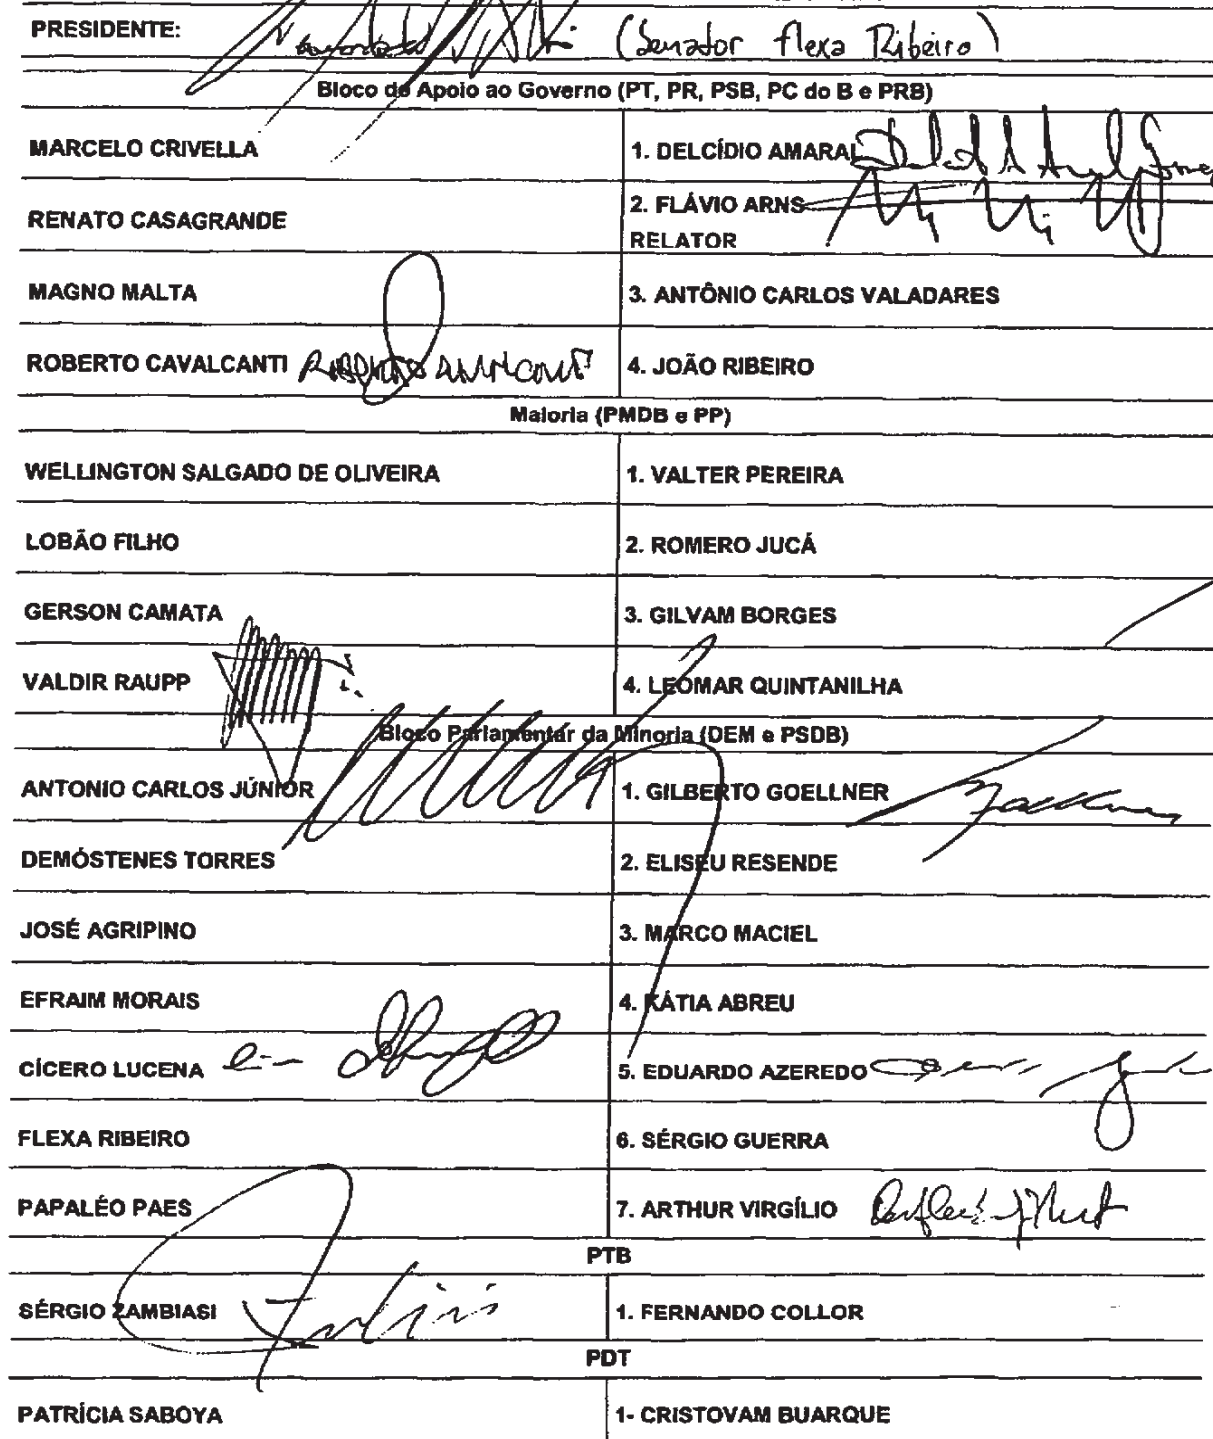 PRESIDENTE: (Senador Flexa Ribeiro)
Bloco de Apoio ao Governo (PT, PR, PSB, PC do B e PRB)
MARCELO CRIVELLA
1. DELCÍDIO AMARAL
RENATO CASAGRANDE
2. FLÁVIO ARNS
RELATOR
MAGNO MALTA
3. ANTÔNIO CARLOS VALADARES
ROBERTO CAVALCANTI
4. JOÃO RIBEIRO
Maioria (PMDB e PP)
WELLINGTON SALGADO DE OLIVEIRA
1. VALTER PEREIRA
LOBÃO FILHO
2. ROMERO JUCÁ
GERSON CAMATA
3. GILVAM BORGES
VALDIR RAUPP
4. LEOMAR QUINTANILHA
Bloco Parlamentar da Minoria (DEM e PSDB)
ANTONIO CARLOS JÚNIOR
1. GILBERTO GOELLNER
DEMÓSTENES TORRES
2. ELISEU RESENDE
JOSÉ AGRIPINO
3. MARCO MACIEL
EFRAIM MORAIS
4. KÁTIA ABREU
CÍCERO LUCENA
5. EDUARDO AZEREDO
FLEXA RIBEIRO
6. SÉRGIO GUERRA
PAPALÉO PAES
7. ARTHUR VIRGÍLIO
PTB
SÉRGIO ZAMBIASI
1. FERNANDO COLLOR
PDT
PATRÍCIA SABOYA
1- CRISTOVAM BUARQUE